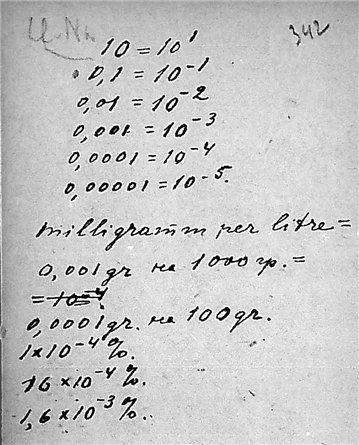 342
10 = 10¹
0,1 = 10⁻¹
0,01 = 10⁻²
0,001 = 10⁻³
0,0001 = 10⁻⁴
0,00001 = 10⁻⁵.
milligramm per litre =
0,001 gr на 1000 гр. =
= 10⁻⁴
0,0001 gr. на 100 gr.
1×10⁻⁴ %.
16×10⁻⁴ %.
1,6×10⁻³ %.